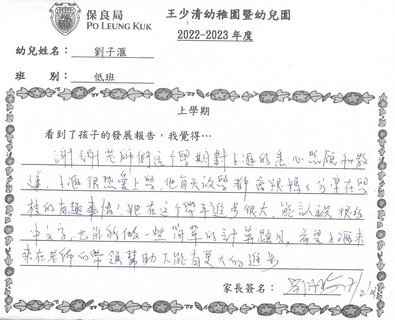 保良局 王少清幼稚園暨幼兒園
PO LEUNG KUK 2022-2023 年度
幼兒姓名： 劉子滙
班 別： 低班
上學期
看到了孩子的發展報告，我覺得…
謝謝老師們這个學期對子滙的悉心照顧和教
導，子滙很熱愛上學，他每天放學都會跟媽媽分享在學
校的有趣事情！她在这个學年進步很大，能認識很多
中文字，也能够做一些簡單的計算題目，希望子滙未
來在老師的帶領幫助下能有更大的進步
家長簽名：